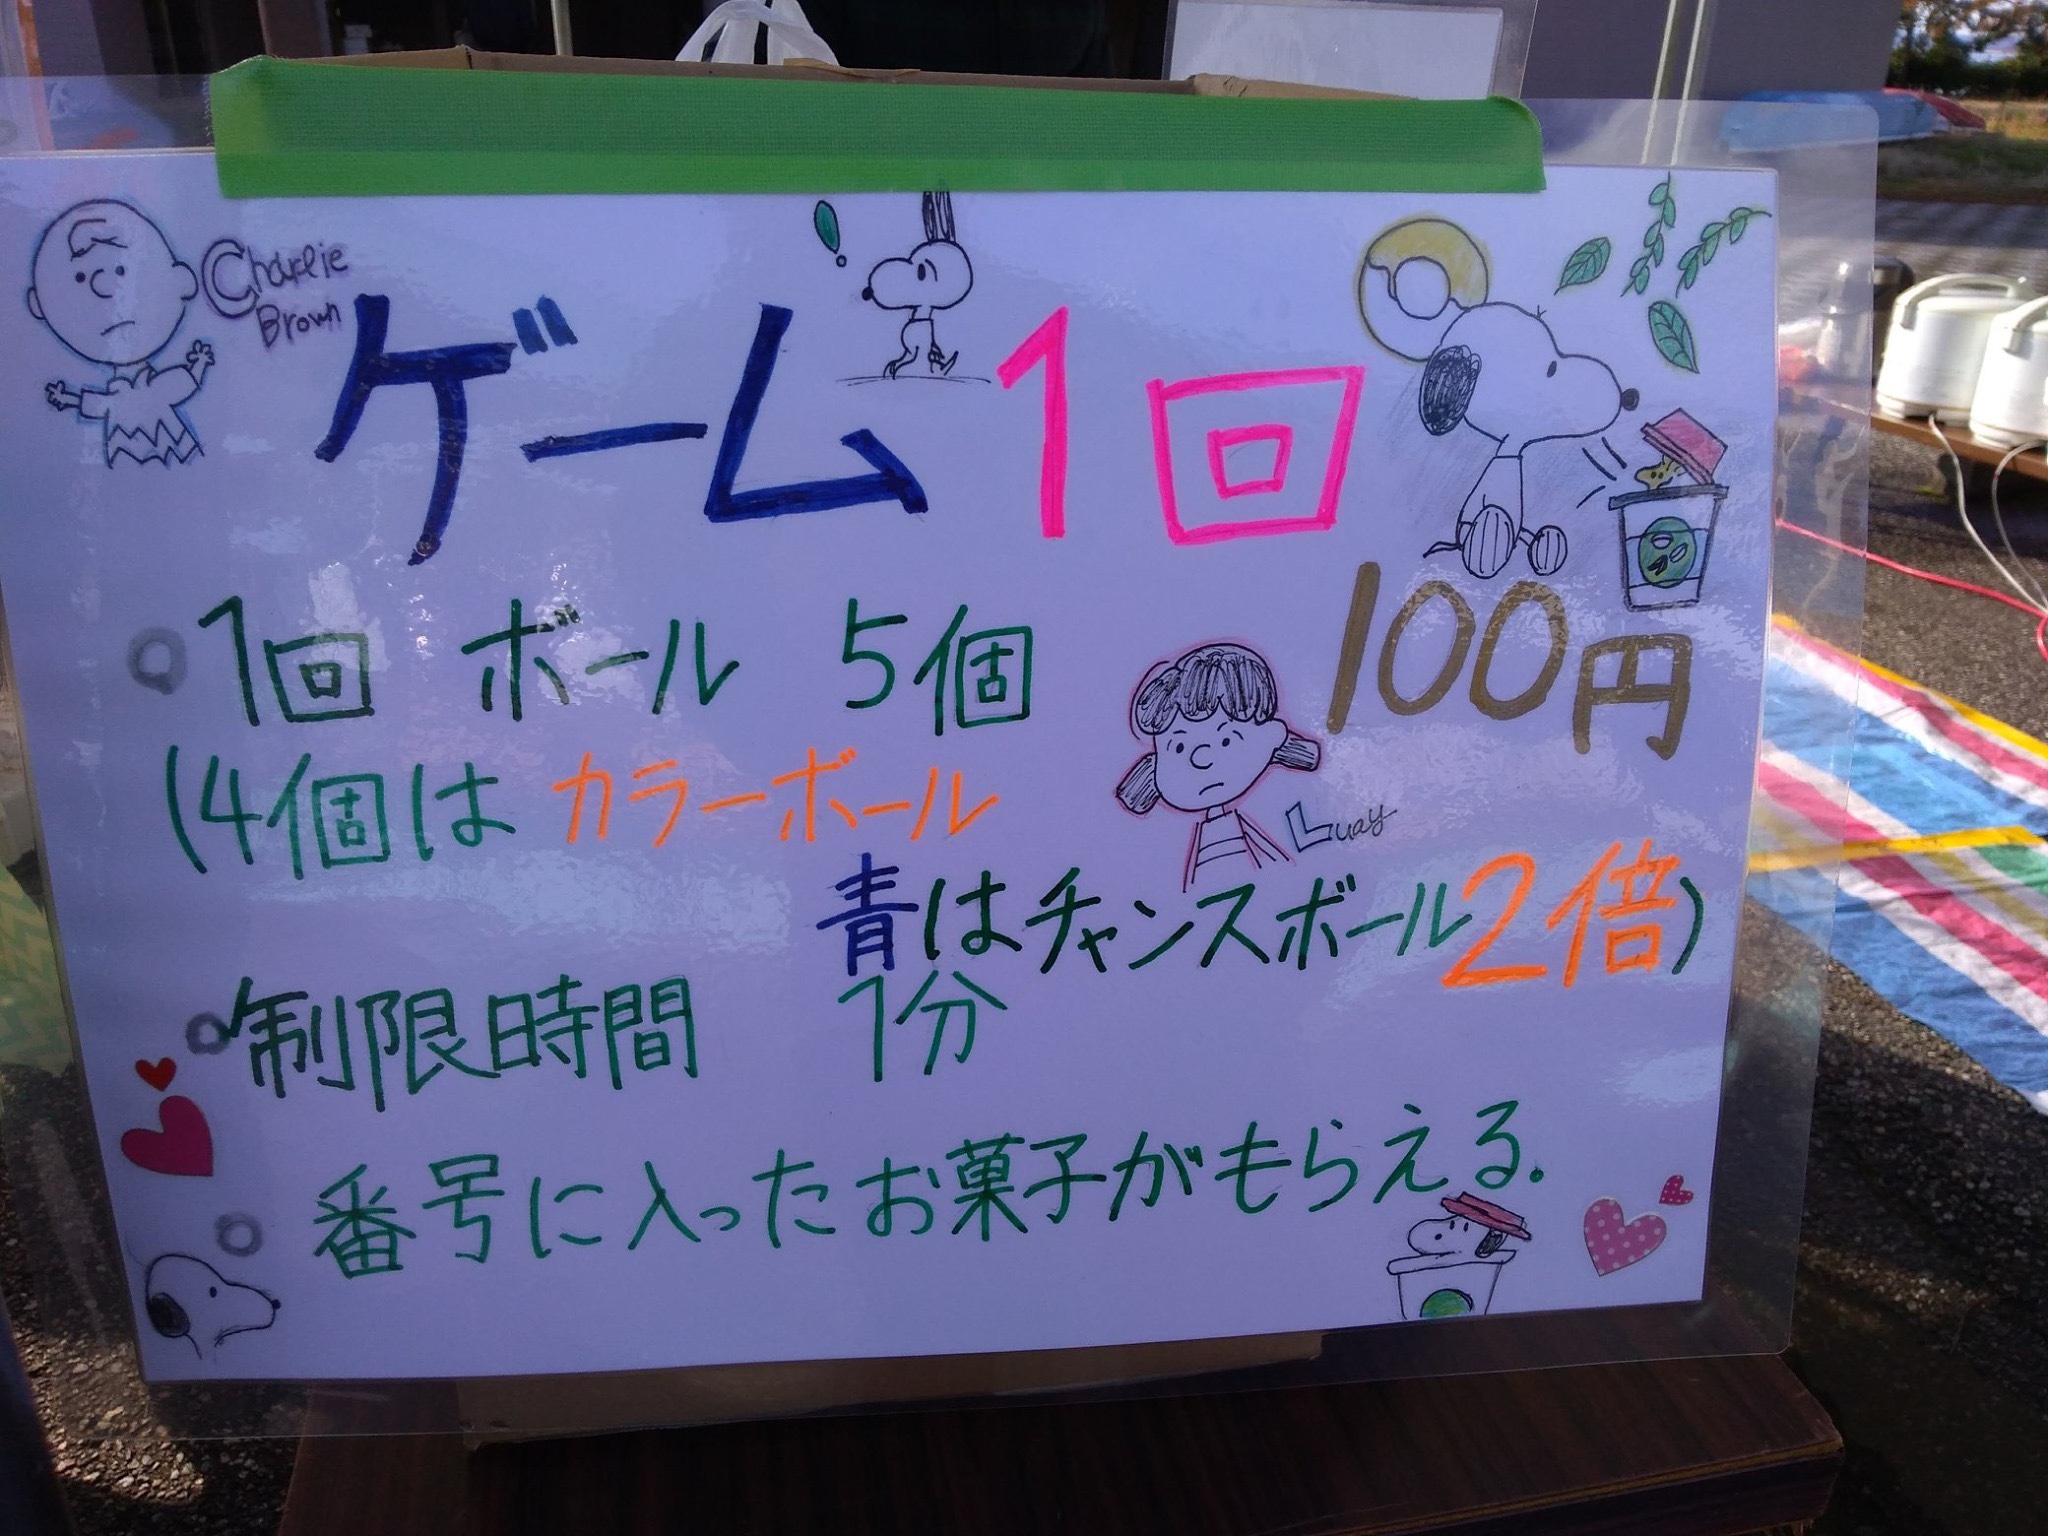 Charlie
Brown
ゲーム1回
100円
1回 ボール 5個
(4個は カラーボール
Luay
青はチャンスボール2倍)
制限時間 1分
番号に入ったお菓子がもらえる.